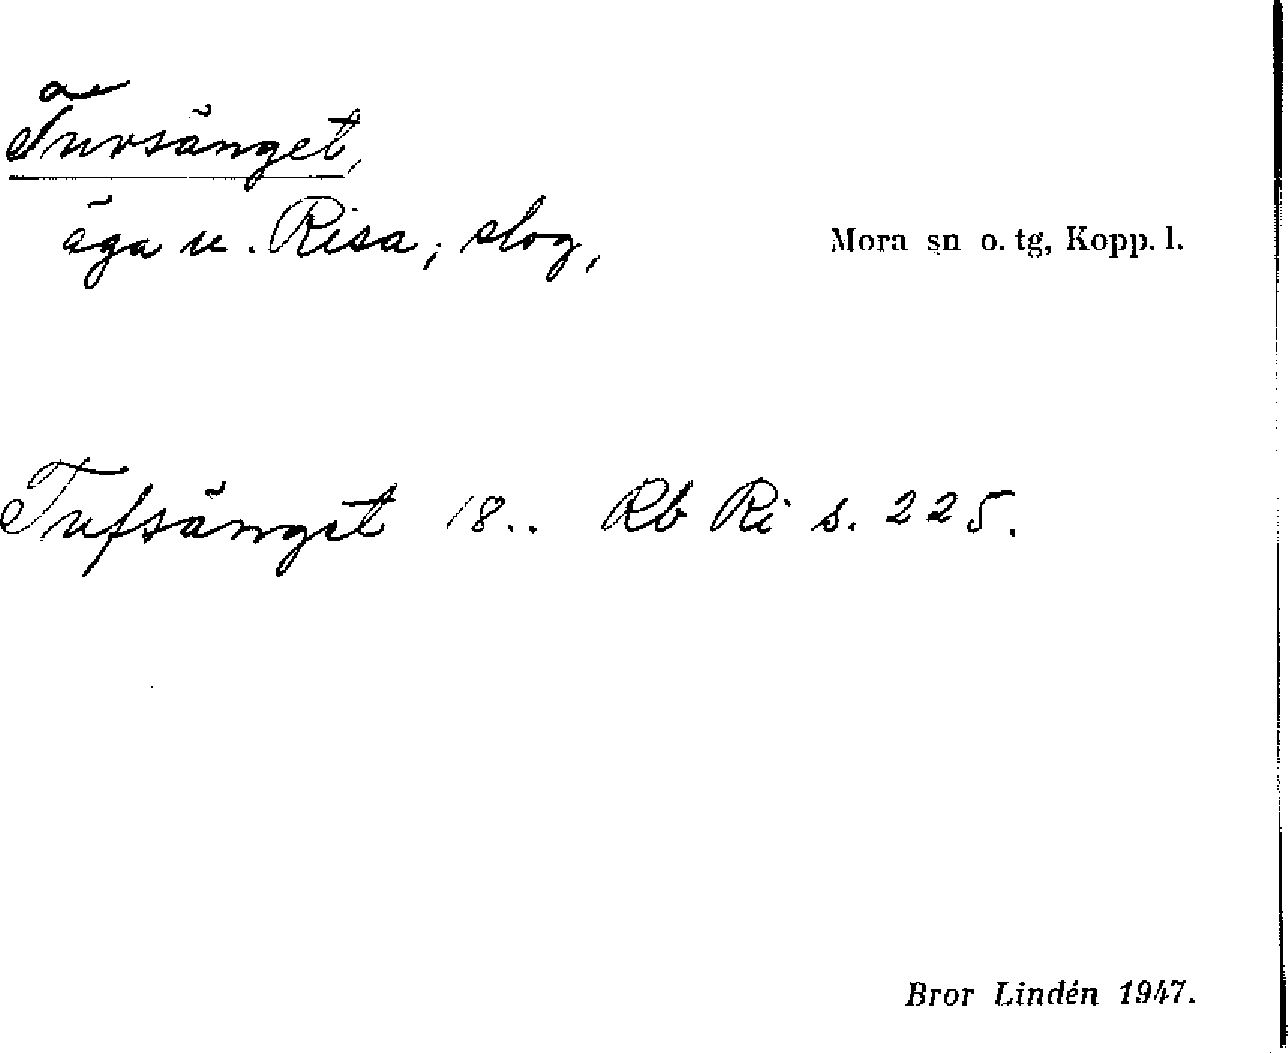 Tuvsänget,
äga u. Risa; slog,
Mora sn o. tg, Kopp. l.
Tufsänget 18.. Rb Ri s. 225.
Bror Lindén 1947.